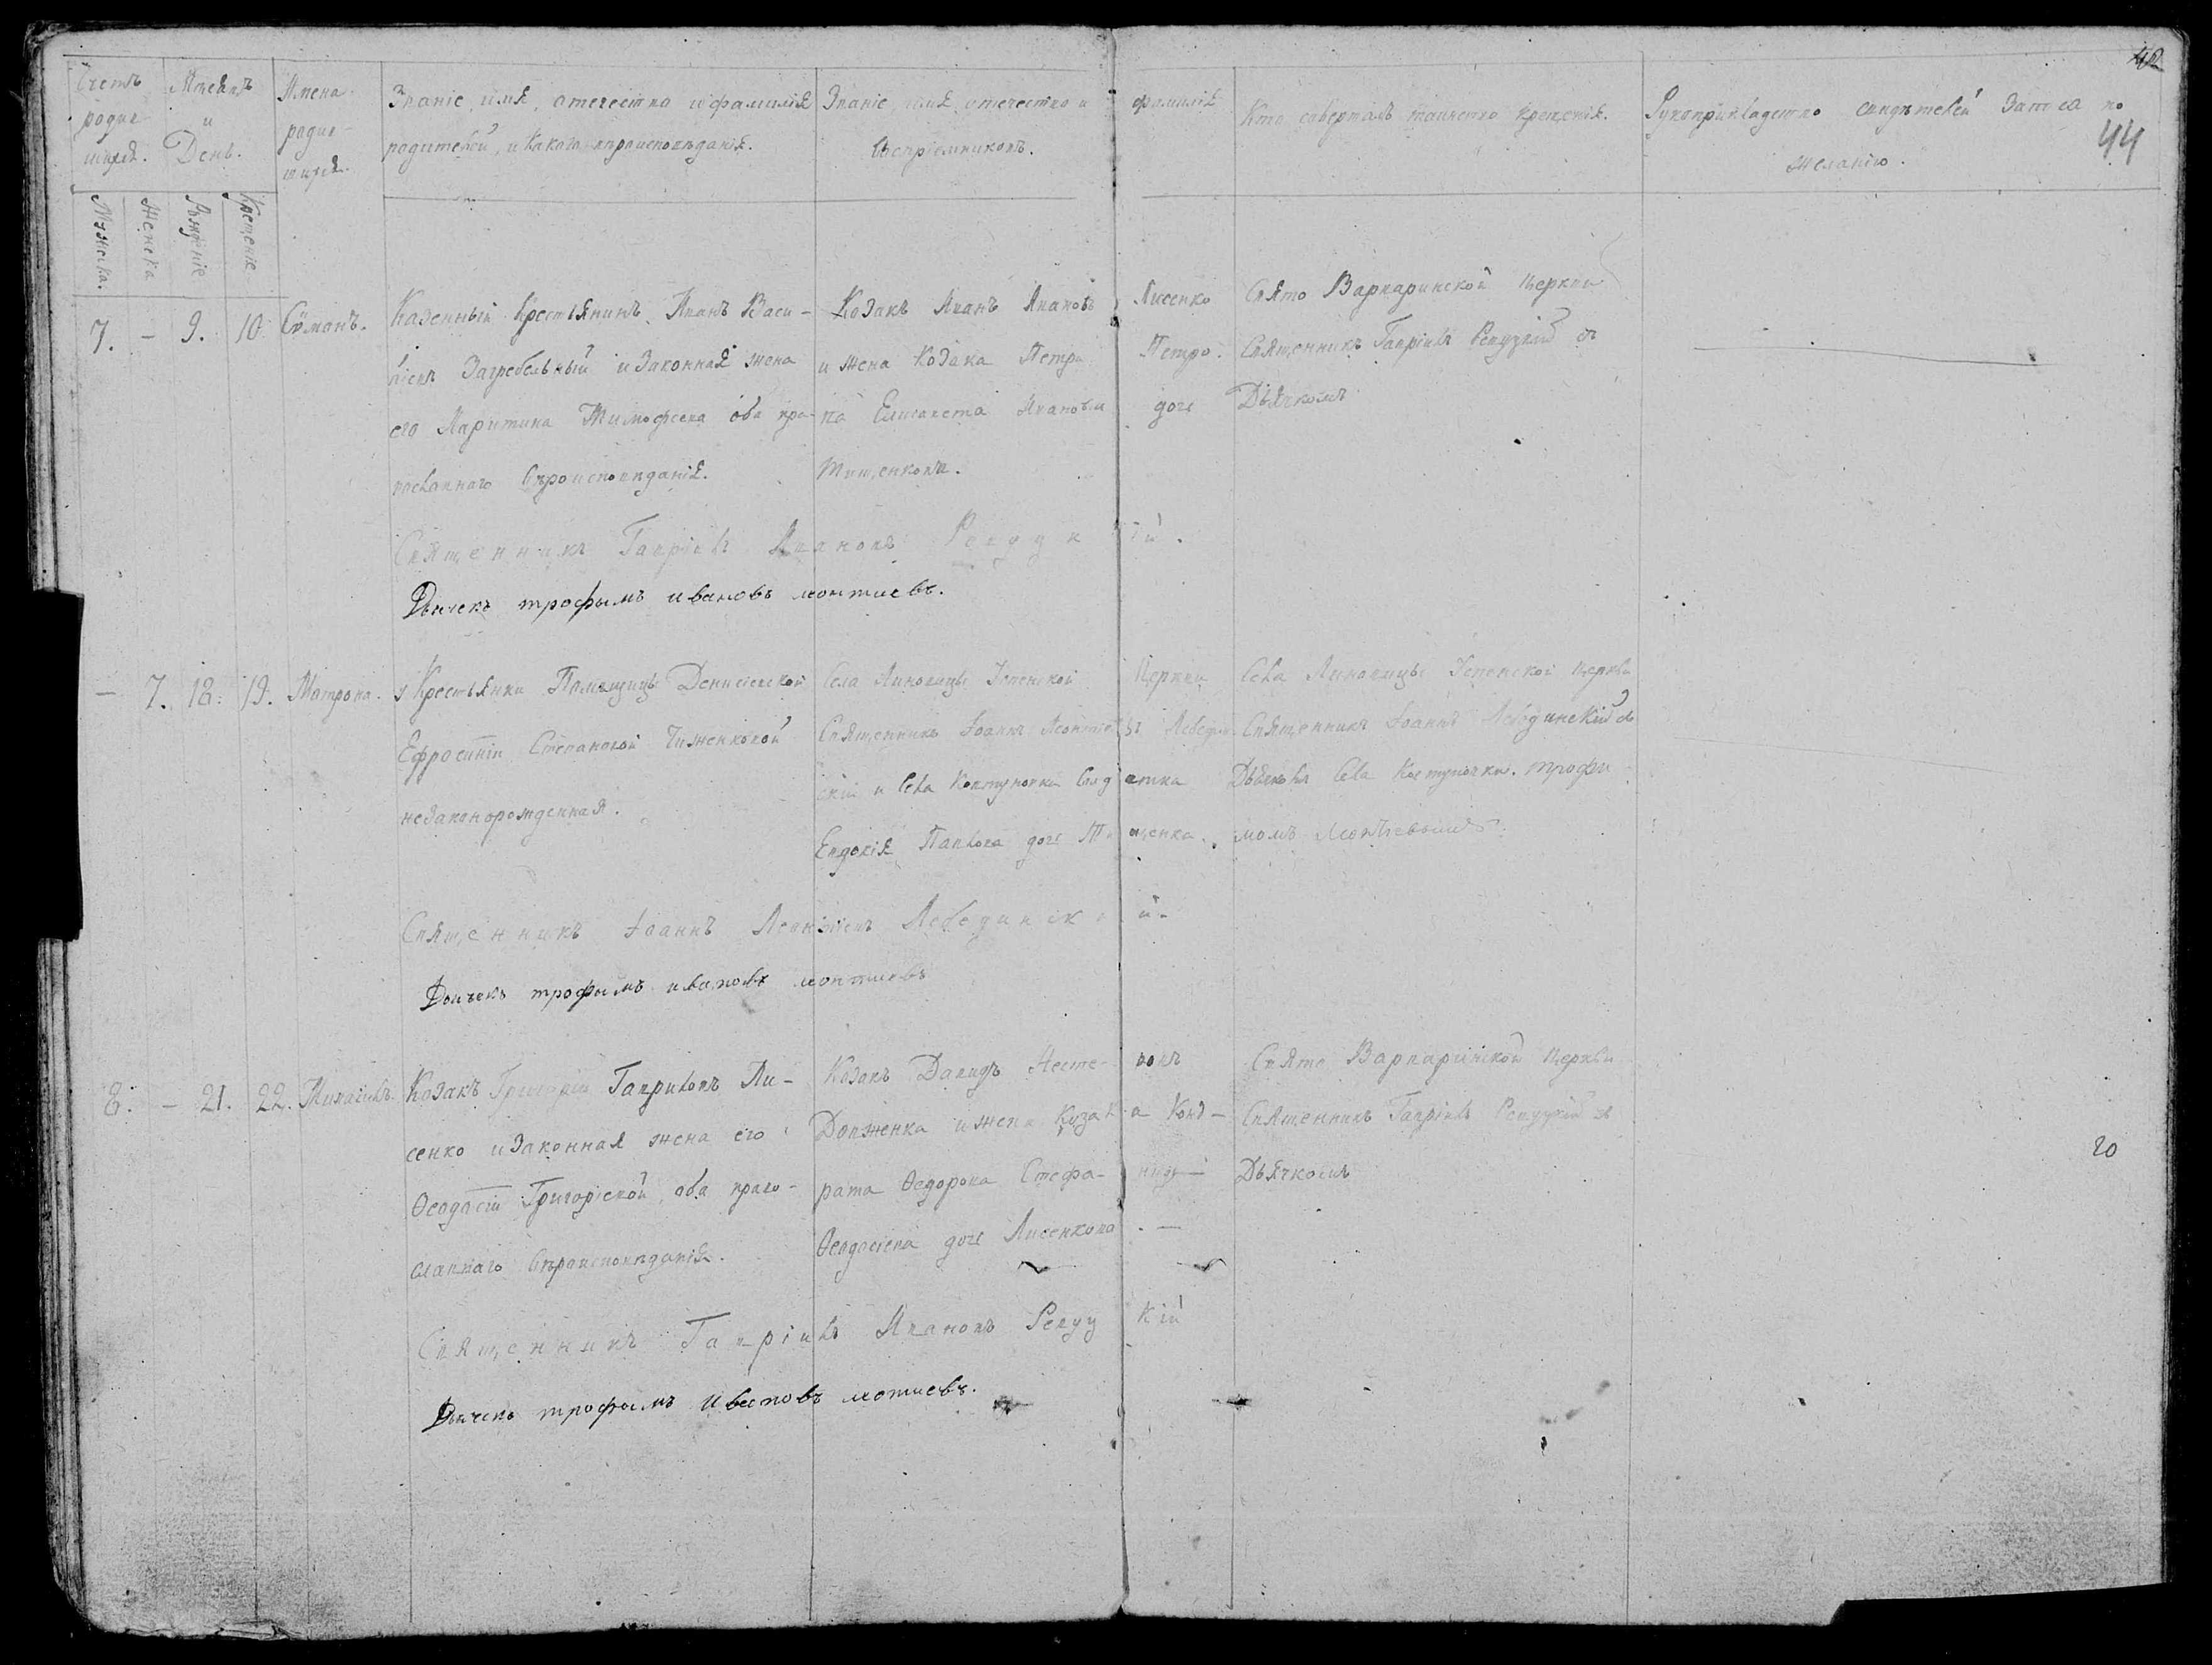 42
44
Счетъ родив-шихся.
Мѣсяцъ и День.
Имена родив-шихся.
Званіе, имя, отечество и фамилія
родителей, и какого вѣроисповѣданія.
Званіе, имя, отечество и фамилія
воспріемниковъ.
Кто совершалъ таинство крещенія.
Рукоприкладство свидѣтелей записи по
желанію.
Мужска.
Женска
Рожденіе
Крещеніе
7. - 9. 10 Сѵмонъ.
Казенный Крестьянинъ Иванъ Васи-
ліевъ Загребельный и Законная жена
его Тимофеева оба пра-
вославнаго вѣроисповѣданія.
Козакъ Иванъ Ивановъ Лисенко
и жена Козака Петра Петро-
ва Елисавета Иванова доче
Тищенкова.
Свято Варваринской церкви
Священникъ Гавріилъ Репуцкій съ
Дьячкомъ
Священникъ Гавріилъ Ивановъ Репуцкій.
Дьячекъ трофымъ ивановъ леонтиевъ.
- 7. 18. 19. Матрона.
у Крестьянки Помѣщицы Денисіевской
Ефросиніи Степановой Чиженковой
незаконорожденная.
Села Линовицы Успенской Церкви
Священникъ Іоаннъ Леонтіевъ Лебедин-
скій и Села
Евдокія Павлова доче Тищенка.
Села Линовицы Успенской церкви
Священникъ Іоаннъ Лебединскій съ
Дьячкомъ Села трофи-
момъ Леонтіевымъ
Священникъ Іоаннъ Леонтіевъ Лебединскій.
Дьячекъ трофымъ ивановъ леонтиевъ
8. - 21. 22. Михаилъ.
Козакъ Григорій Гавриловъ Ли-
сенко и Законная жена его
Ѳеодосіи Григоріевой, оба право-
славнаго вѣроисповѣданія.
Козакъ Давидъ Несте-ровъ
Довженка и жена Козака Конд-
рата Ѳедорова Стефа-нида
Ѳеодосіева доче Лисенкова
Свято Варваринской церкви
Священникъ Гавріилъ Репуцкій съ
Дьячкомъ
20
Священникъ Гавріилъ Ивановъ Репуцкій
Дьячекъ трофымъ Ивановъ леотиевъ.